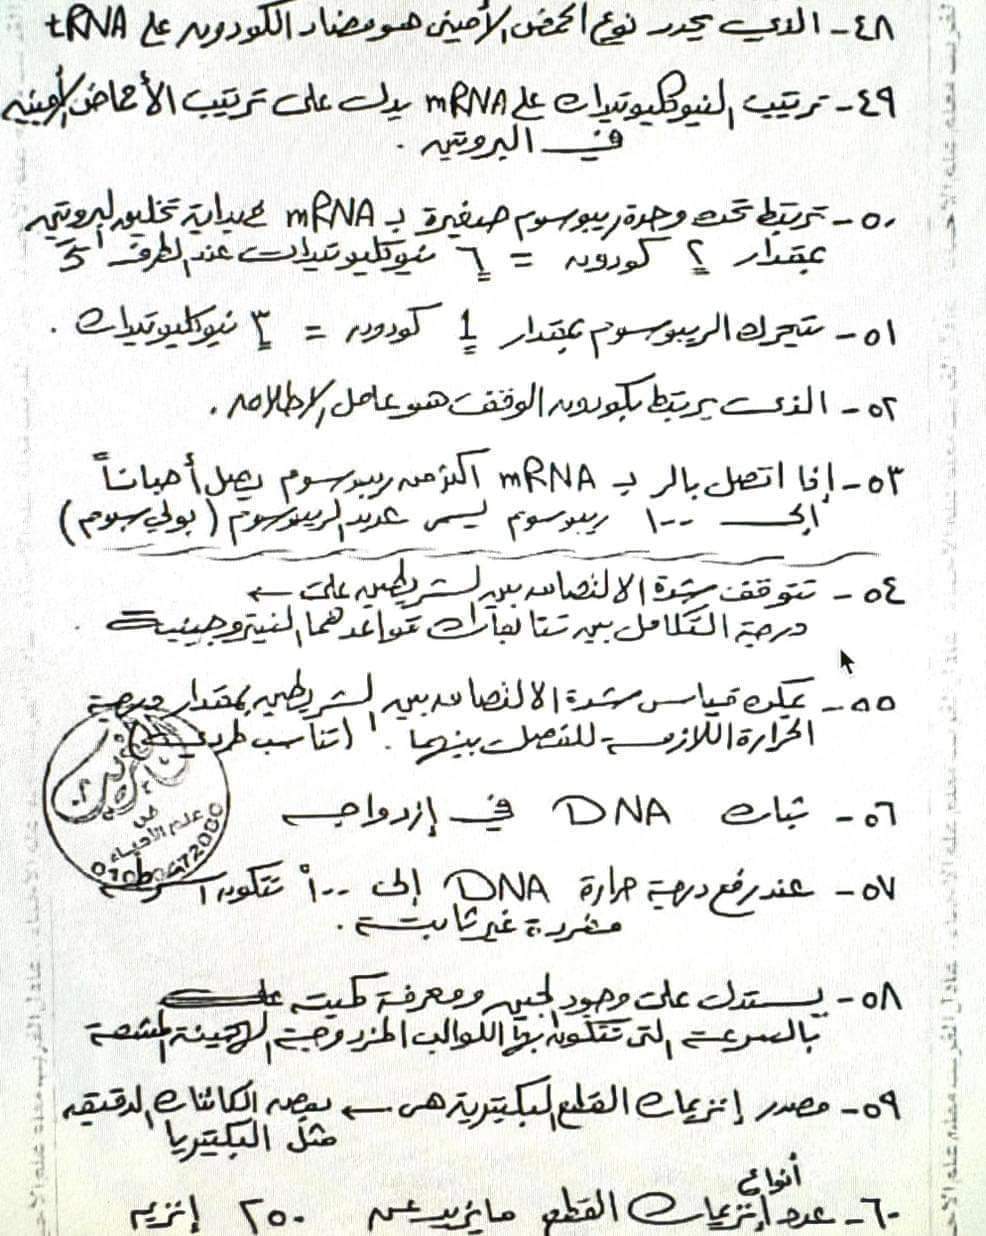 ٤٨- الذي يحدد نوع الحمض الأميني هو مضاد الكودون على tRNA
٤٩- ترتيب النيوكليوتيدات على mRNA يدل على ترتيب الأحماض الأمينية
في البروتين .
٥٠- ترتبط تحت وحدة ريبوسوم صغيرة بـ mRNA في بداية تخليق البروتين
بمقدار ٢ كودون = ٦ نيوكليوتيدات عند الطرف 5'
٥١- يتحرك الريبوسوم بمقدار 1 كودون = ٣ نيوكليوتيدات .
٥٢- الذي يرتبط بكودون الوقف هو عامل الإطلاق .
٥٣- إذا اتصل بالـ بـ mRNA أكثر من ريبوسوم يصل أحياناً
إلى ١٠٠ ريبوسوم يسمى عديد الريبوسوم (بولي سوم)
٥٤- تتوقف شدة الالتصاق بين الشريطين على ←
درجة التكامل بين تتابعات قواعدهما النيتروجينية
٥٥- يمكن قياس شدة الالتصاق بين الشريطين بمقدار درجة
الحرارة اللازمة للفصل بينهما . (تناسب طردي)
٥٦- ثبات DNA في إزدواجه
٥٧- عند رفع درجة حرارة DNA إلى ١٠٠° تتكون أشرطة
مفردة غير ثابتة .
٥٨- يستدل على وجود الجين ومعرفة كميته
بالسرعة التي تتكون بها اللوالب المزدوجة الهجينة المشعة
٥٩- مصدر إنزيمات القطع البكتيرية هى ← بعض الكائنات الدقيقة
مثل البكتيريا
٦٠- عدد أنواع إنزيمات القطع ما يزيد عن ٢٥٠ إنزيم
في
علم الأحياء